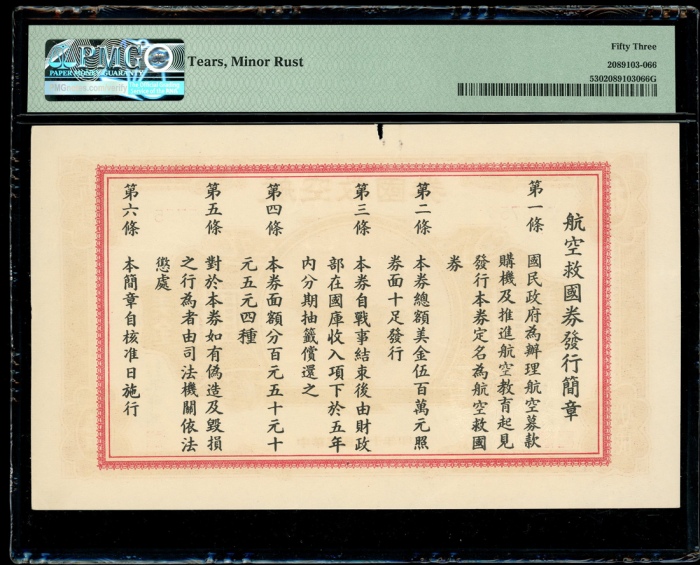 PMG
PAPER MONEY GUARANTY
Tears, Minor Rust
Fifty Three
2089103-066
5302089103066G
航空救國券發行簡章
第一條 國民政府為辦理航空募款
購機及推進航空教育起見
發行本券定名為航空救國
券
第二條 本券總額美金伍百萬元照
券面十足發行
第三條 本券自戰事結束後由財政
部在國庫收入項下於五年
內分期抽籤償還之
第四條 本券面額分百元五十元十
元五元四種
第五條 對於本券如有偽造及毀損
之行為者由司法機關依法
懲處
第六條 本簡章自核准日施行